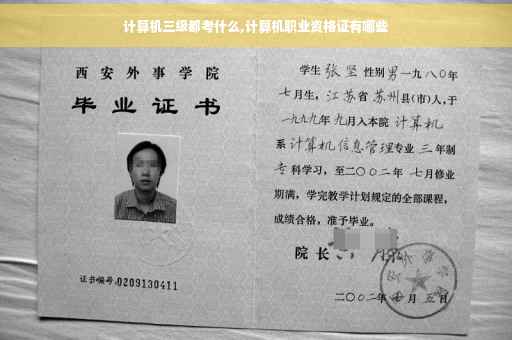 计算机三级都考什么,计算机职业资格证有哪些
西安外事学院
毕业证书
证书编号:0209130411
学生 张坚 性别 男 一九八〇年
七月生, 江苏省 苏州县(市)人,于
一九九九年 九月入本院 计算机
系 计算机信息管理专业 三 年制
专科学习，至二〇〇二年 七月修业
期满，学完教学计划规定的全部课程，
成绩合格，准予毕业。
院长
二〇〇二年 月 五日